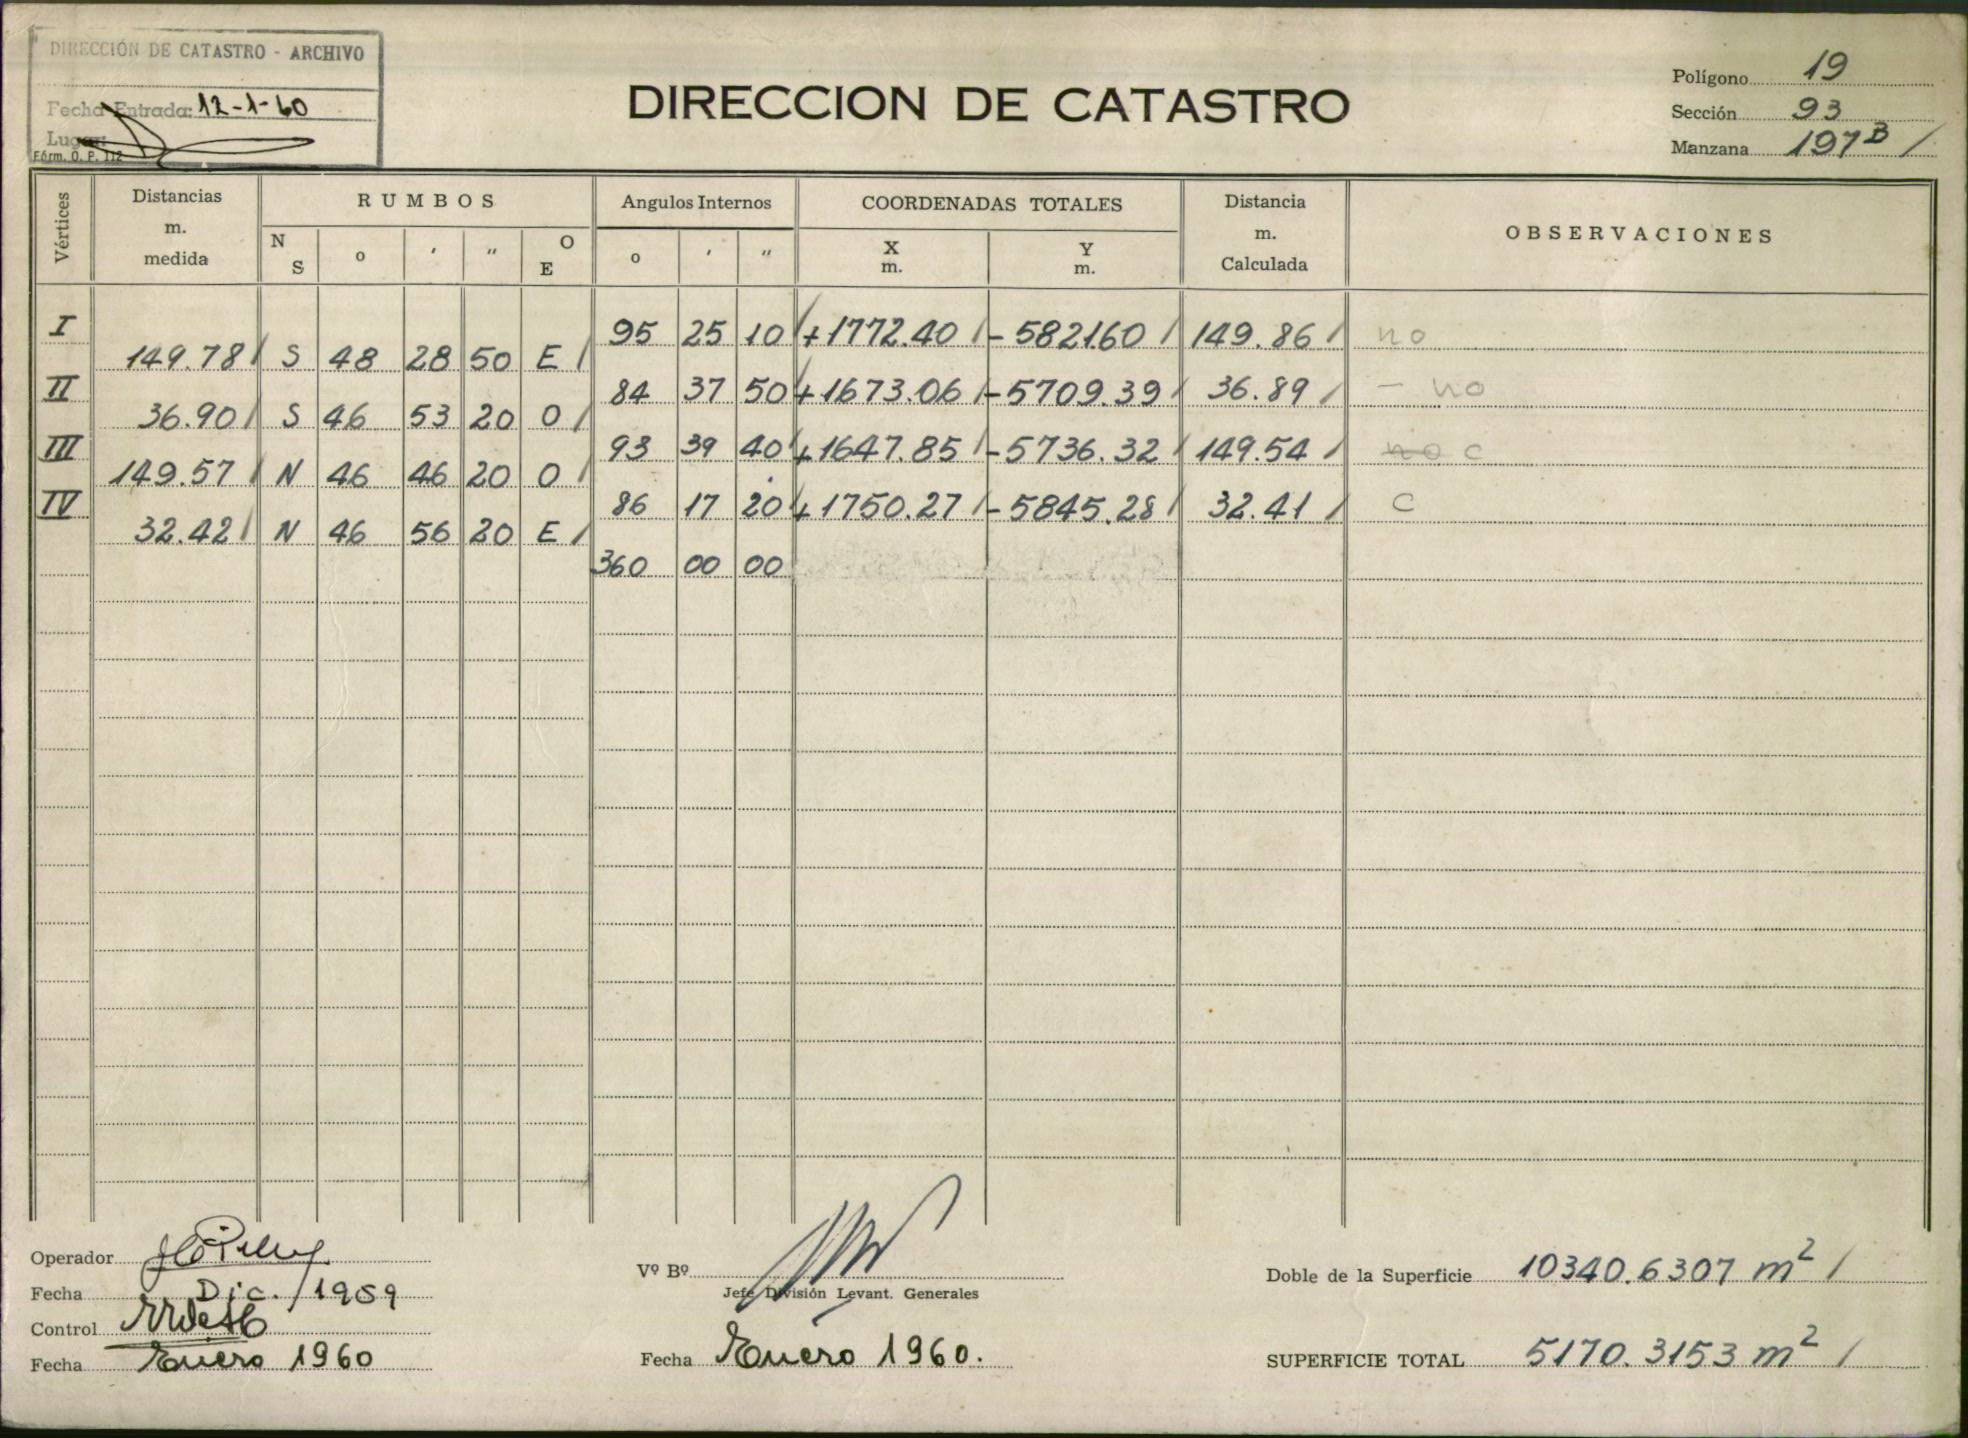 DIRECCIÓN DE CATASTRO - ARCHIVO
Fecha Entrada: 12-1-60
Lugar:
Fórm. O. P. 112
DIRECCION DE CATASTRO
Polígono 19
Sección 93
Manzana 197 B /
Vértices
Distancias m. medida
RUMBOS
Angulos Internos
COORDENADAS TOTALES
Distancia m. Calculada
OBSERVACIONES
N S o ' " O E
o ' "
X m.
Y m.
I 95 25 10 / +1772.40 / -5821.60 / 149.86 / no
149.78 / S 48 28 50 E /
II 84 37 50 / +1673.06 / -5709.39 / 36.89 / - no
36.90 / S 46 53 20 O /
III 93 39 40 / +1647.85 / -5736.32 / 149.54 / no c
149.57 / N 46 46 20 O /
IV 86 17 20 / +1750.27 / -5845.28 / 32.41 / c
32.42 / N 46 56 20 E /
360 00 00
Operador
Fecha Dic. / 1959
Control
Fecha Enero 1960
Vº Bº
Jefe División Levant. Generales
Fecha Enero 1960.
Doble de la Superficie 10340.6307 m² /
SUPERFICIE TOTAL 5170.3153 m² /